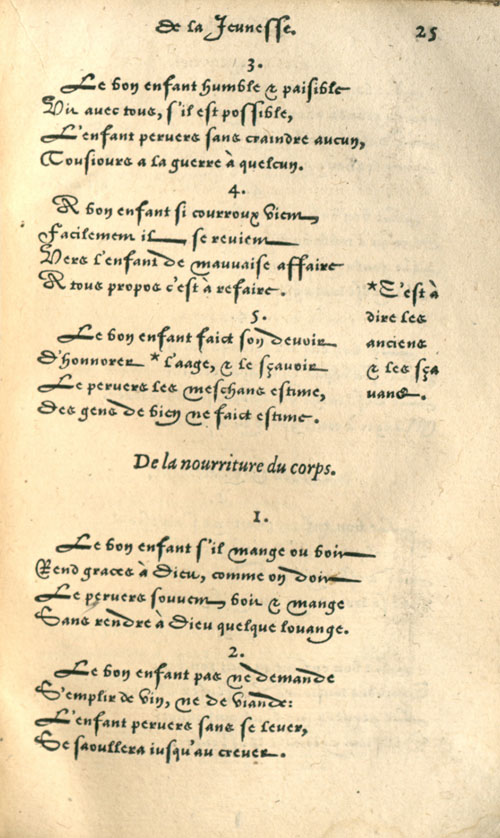 de la Jeunesse. 25
3.
Le bon enfant humble & paisible
Vit avec tous, s'il est possible,
L'enfant pervers sans craindre aucun,
Tousiours a la guerre à quelcun.
4.
A bon enfant si courroux vient,
Facilement il se revient
Vers l'enfant de mauvaise affaire
A tous propos c'est a refaire.
5.
Le bon enfant faict son devoir
d'honnorer * l'aage, & le sçavoir
Le pervers les meschans estime,
Des gens de bien ne faict estime.
*C'est à
dire les
anciens
& les sça
vans.
De la nourriture du corps.
1.
Le bon enfant s'il mange ou boit
Rend graces à Dieu, comme on doit
Le pervers souvent boit & mange
Sans rendre à Dieu quelque louange.
2.
Le bon enfant pas ne demande
S'emplir de vin, ne de viande:
L'enfant pervers sans se lever,
Se saoullera iusqu'au crever.